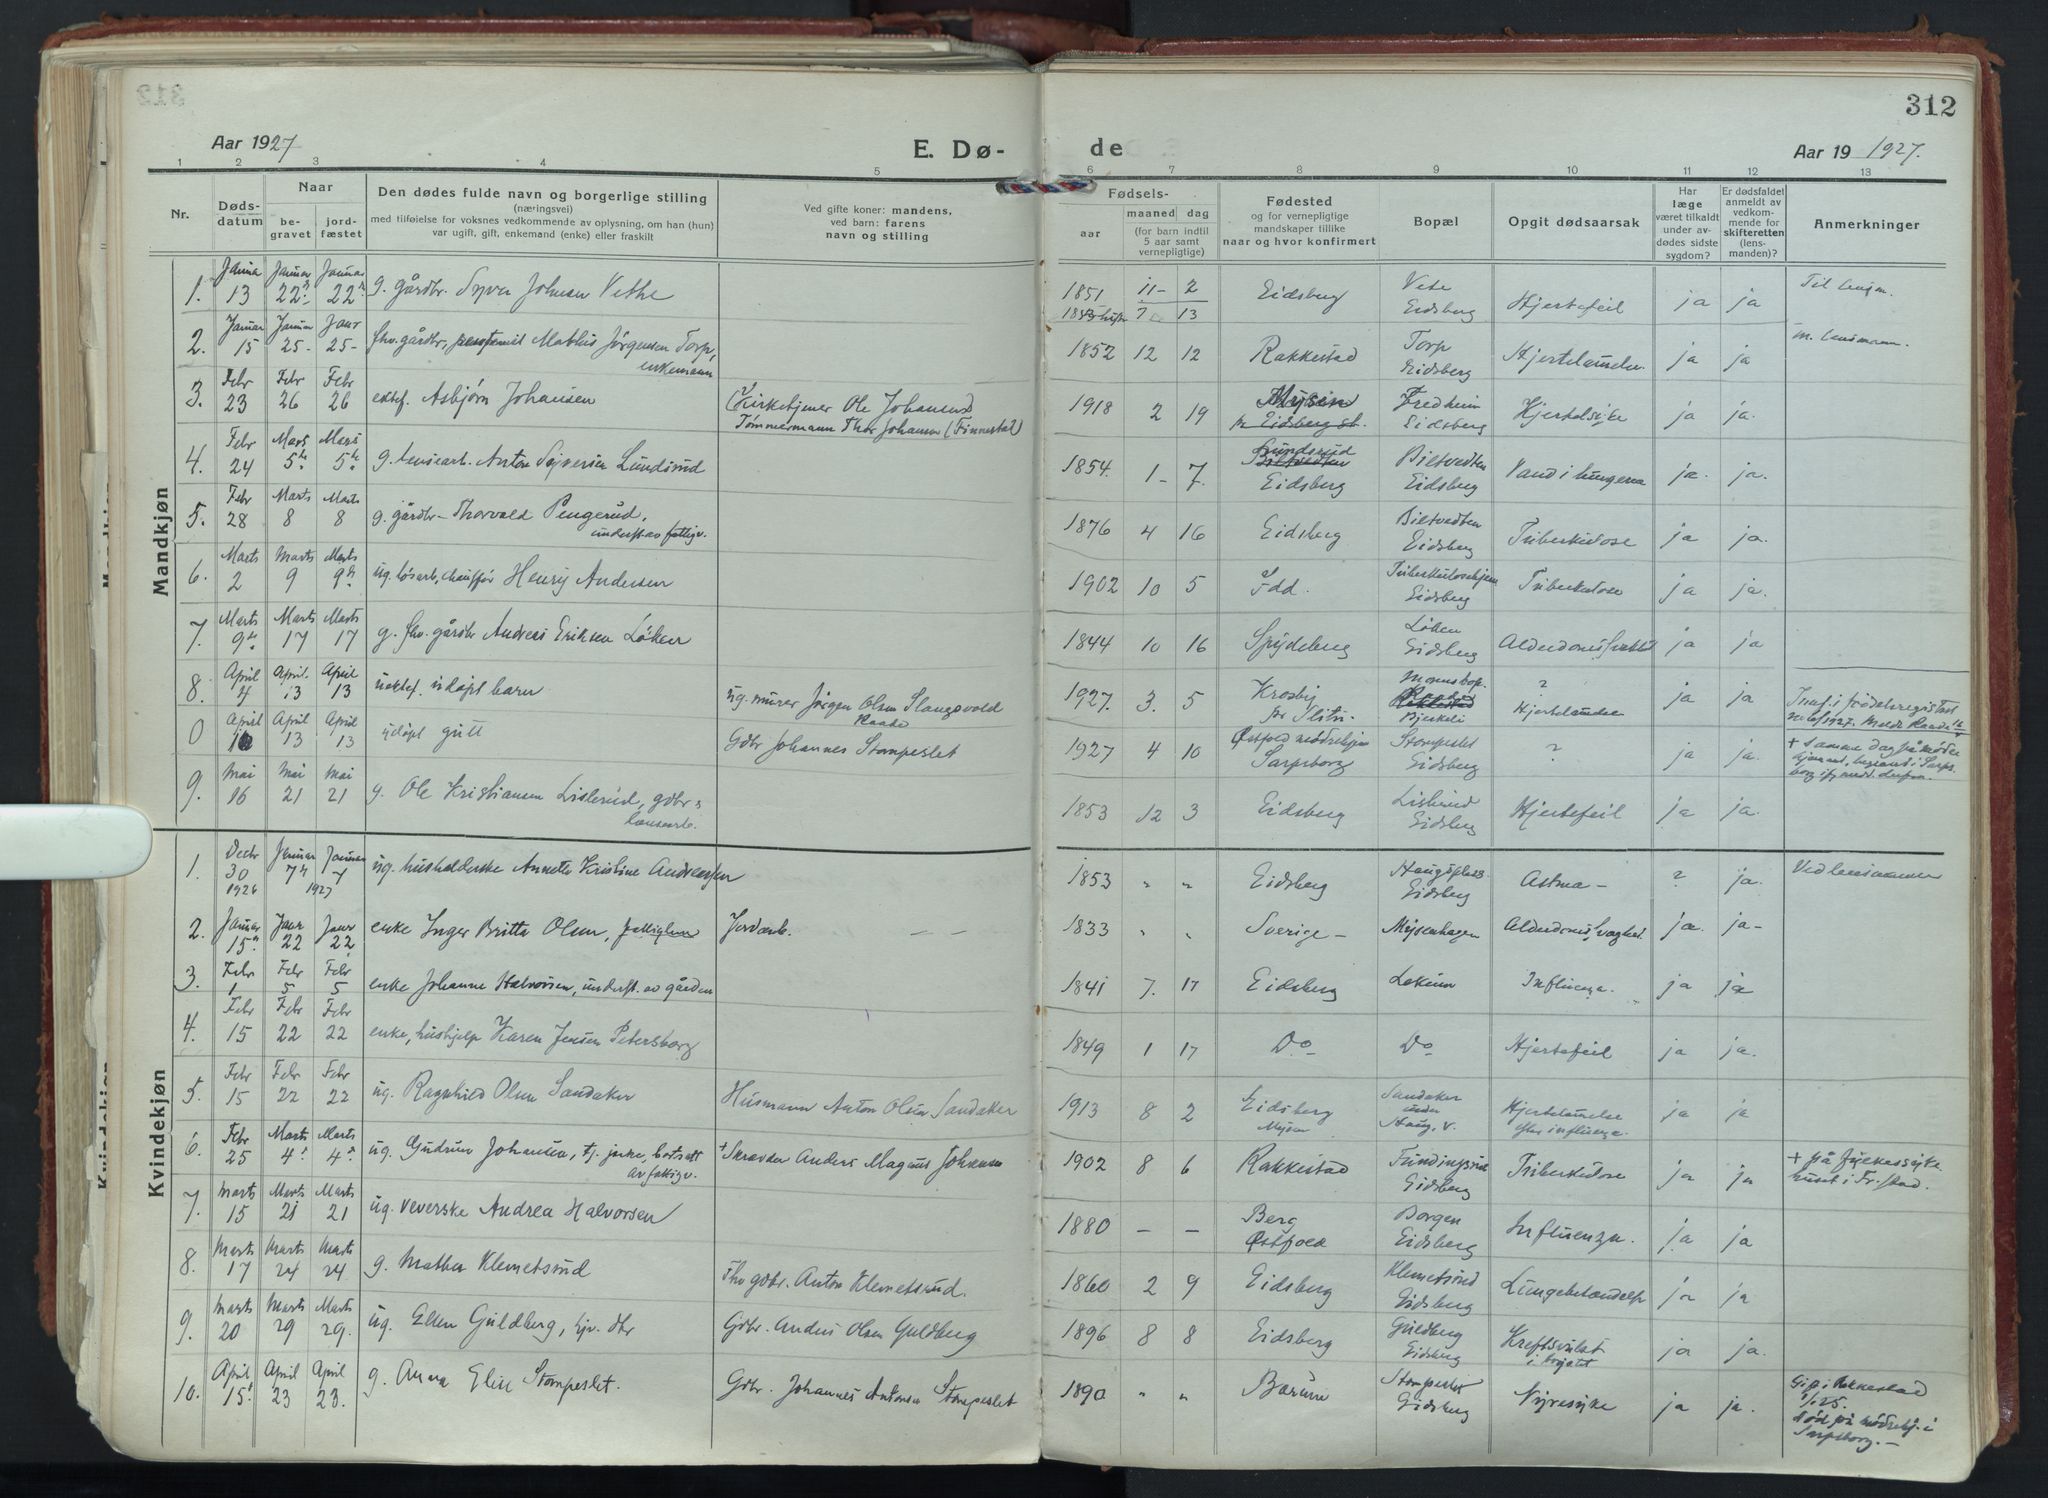 312
Aar 1927
E. Dø-
de
Aar 19 1927.
1 2 3 4 5 6 7 8 9 10 11 12 13
Nr.
Døds-
datum
Naar
be-
gravet
jord-
fæstet
Den dødes fulde navn og borgerlige stilling
(næringsvei)
med tilføielse for voksnes vedkommende av oplysning, om han (hun)
var ugift, gift, enkemand (enke) eller fraskilt
Ved gifte koner: mandens,
ved barn: farens
navn og stilling
Fødsels-
aar
maaned dag
(for barn indtil
5 aar samt
vernepligtige)
Fødested
og for vernepligtige
mandskaper tillike
naar og hvor konfirmert
Bopæl
Opgit dødsaarsak
Har
læge
været tilkaldt
under av-
dødes sidste
sygdom?
Er dødsfaldet
anmeldt av
vedkom-
mende for
skifteretten
(lens-
manden)?
Anmerkninger
Mandkjøn
1. Janua 13 Januar 22 Januar 22 g. gårdbr. Syver Johnsen Vethe 1851 11 - 2 Eidsberg Vete Eidsberg Hjertefeil ja ja Til lensm.
7 13
2. Januar 15 Januar 25- Janr 25- fhv. gårdbr, Mathis Jörgensen Torp, enkemann 1852 12 12 Rakkestad Torp Eidsberg Hjertelammelse ja ja m. lensmann.
3. Febr 23 Febr 26 Febr 26 ektef. Asbjørn Johansen Kirketjener Ole Johansens
Tømmermann Thor Johansen (Finnestad) 1918 2 19 Mysen pr Eidsberg st. Fredheim Eidsberg Hjertesyke ja ja.
4. Febr 24 Mars 5 Mars 5 g. Anton Syversen Lundsrud 1854. 1 - 7. Lundsrud Biltvedten Eidsberg Biltvedten Eidsberg Vand i lungerne ja. ja.
5. Febr 28 Marts 8 Marts 8 g. gårdbr - Thorvald Pengerud, underst. av fattigv. 1876 4 16 Eidsberg Biltvedten Eidsberg Tuberkulose ja ja.
6. Marts 2 Marts 9 Marts 9 ug. løsarb, chauffør Henry Andersen 1902 10 5 Idd. Tuberkulosehjem Eidsberg Tuberkulose ja ja.
7. Marts 9 Marts 17 Marts 17 g. fhv. gårdbr Andreas Eriksen Løken 1844 10 16 Spydeberg Løken Eidsberg Alderdomssvakhet ja ja
8. April 4 April 13 April 13 uektef. udøpt barn ug. murer Jörgen Olsen Slangsvold Raade 1927. 3. 5 Krosby pr Slitu - Rakkestad Bjerkeli ? Hjertelammelse ja ja Innf. i fødselsregistret no 6/1927. Meldt Raade
0 April 10 April 13 April 13 udøpt gutt Gdbr Johannes Stompeslet 1927 4 10 Østfold mødrehjem Sarpsborg Stompeslet Eidsberg ? ja ja. + samme dag på mødre
9. Mai 16 Mai 21 Mai 21 g. Ole Kristiansen Lislerud, gdbr 1853 12 3 Eidsberg Lislerud Eidsberg Hjertefeil ja ja.
Kvindekjøn
1. Decbr 30 1926 Januar 7 Januar 7 1927 ug. husholderske Annette Kristine Andreassen 1853 " " Eidsberg Haugsplass Eidsberg Astma - ? ja. Ved lensmannen
2. Januar 15 Janr 22 Janr 22 enke Inger Britta Olsen, fattiglem Jordarb. - - 1833 " " Sverige - Mysenhagen Alderdomssvaghet. ja. ja -
3. Febr 1 Febr 5 Febr 5 enke Johanne Halvorsen, underst. av gården 1841 7. 17 Eidsberg Influenza. ja ja
4. Febr 15 Febr 22 Febr 22 enke, hushjelp Karen Jensen Petersborg 1849 1 17 Do Do Hjertefeil ja ja.
5. Febr 15 Febr 22 Febr 22 ug. Ragnhild Olsen Sandaker Husmann Anton Olsen Sandaker 1913 8 2 Eidsberg Mysen Sandaker under Haug. v. Hjertelammelse efter influenza. ja ja
6. Febr 25 Marts 4 Marts 4 ug. Gudrun Johansen, tj. pike, bortsatt av fattigv. + Skredder Anders Magnus Johansen 1902 8 6 Rakkestad Fundingsrud Eidsberg Tuberkulose ja ja + på fylkessyke huset i Fr.stad.
7. Marts 15 Marts 21 Marts 21 ug. veverske Andrea Halvorsen 1880 - - Berg Østfold Borgen Eidsberg Influenza. ja ja
8. Marts 17 Marts 24 Marts 24 g. Mathea Klemetsrud Fhv gdbr. Anton Klemetsrud. 1860 2 9 Eidsberg Klemetsrud Eidsberg Lungebetændelse ja ja
9. Marts 20 Marts 29 Marts 29. ug. Ellen Guldberg, hjv. dtr Gdbr. Anders Olsen Guldberg 1896 8 8 Eidsberg Guldberg Eidsberg Kreftsvulst i brystet ja ja.
10. April 15 April 23 April 23. g. Anna Elise Stompeslet. Gdbr. Johannes Antonsen Stompeslet 1890 " " Bærum Stompeslet Eidsberg Nyresyke ja ja. Gift i Rakkestad
1/1 25.
død på mødrehj. i
Sarpsborg. -